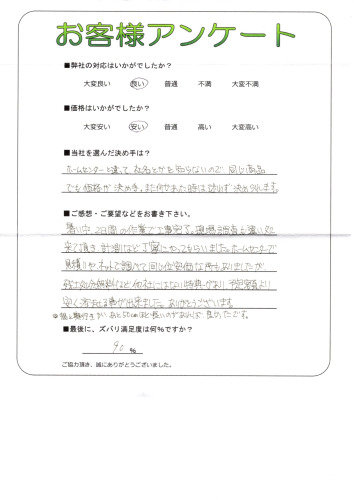 お客様アンケート
■弊社の対応はいかがでしたか？
大変良い　良い　普通　不満　大変不満
■価格はいかがでしたか？
大変安い　安い　普通　高い　大変高い
■当社を選んだ決め手は？
ホームセンターと違って 社名とかを知らないので、同じ商品
でも価格が決め手。また何かあった時は迷わず決めれます。
■ご感想・ご要望などをお書き下さい。
暑い中、2日間の作業で工事完了。現場調査も遠い処
来て頂き、計測など丁寧にやってもらいました。ホームセンターで
見積りや、ネットで調べて同じ位安価な所もありましたが、
残土処分無料など他社にはない特典があり、予定額より
安く済ませる事が出来ました。ありがとうございます。
あと50cmほど長いのがあれば、良かったです。
■最後に、ズバリ満足度は何%ですか？
90 %
ご協力頂き、誠にありがとうございました。